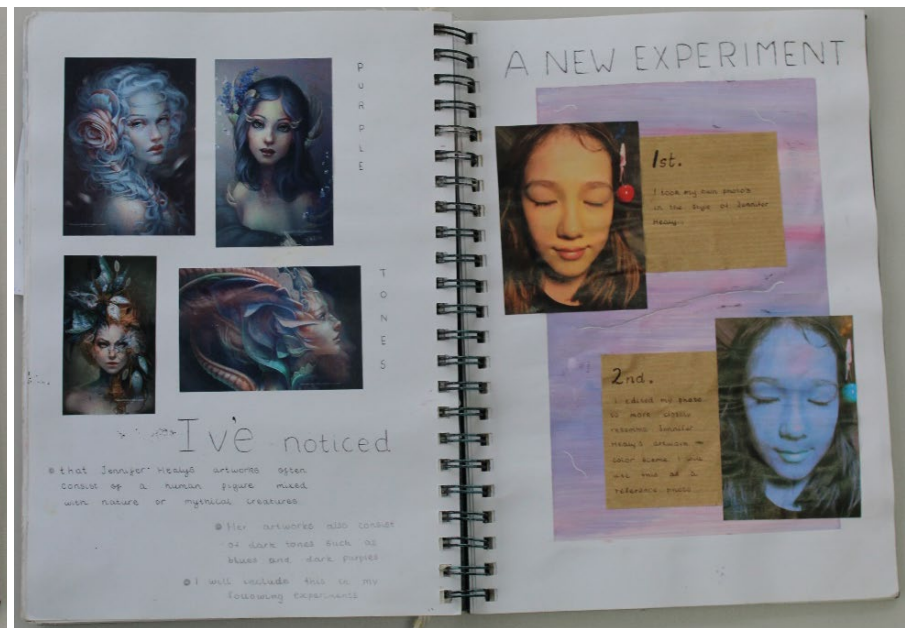 PURPLE
TONES
I've noticed
that Jennifer Healy's artworks often
consist of a human figure mixed
with nature or mythical creatures.
Her artworks also consist
of dark tones such as
blues and dark purples
I will include this in my
following experiments
A NEW EXPERIMENT
1st.
I took my own photo's
in the style of Jennifer
Healy.
2nd.
I edited my photo
to more closely
resemble Jennifer
Healy's artwork
color scheme. I will
use this as a
reference photo